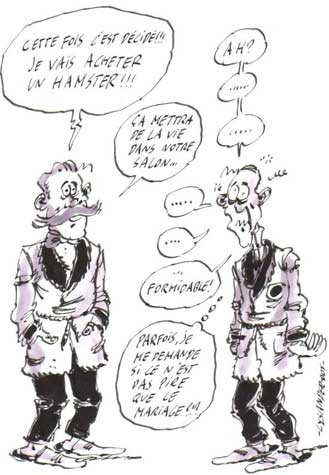 CETTE FOIS C'EST DÉCIDÉ!!!
JE VAIS ACHETER
UN HAMSTER!!!
AH?
......
.....
ÇA METTRA
DE LA VIE
DANS NOTRE
SALON...
....
....
...
FORMIDABLE!
PARFOIS, JE
ME DEMANDE
SI CE N'EST
PAS PIRE
QUE LE
MARIAGE!!!